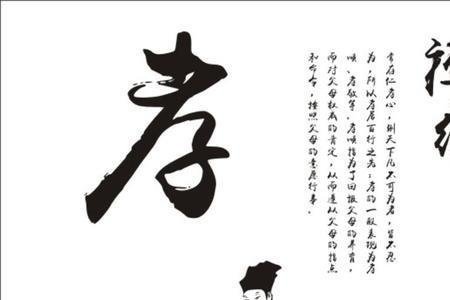 常存仁孝心，则天下凡不可为者，皆不忍
为，所以孝居百行之先；孝的一般表现为孝
顺、孝敬等。孝顺指为了回报父母的养育，
而对父母权威的肯定，从而遵从父母的指点
和命令，按照父母的意愿行事。
孝